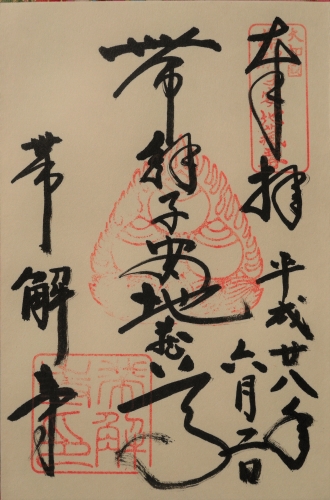 奉拝
平成廿八年
六月二日
帯解子安地蔵尊
帯解寺